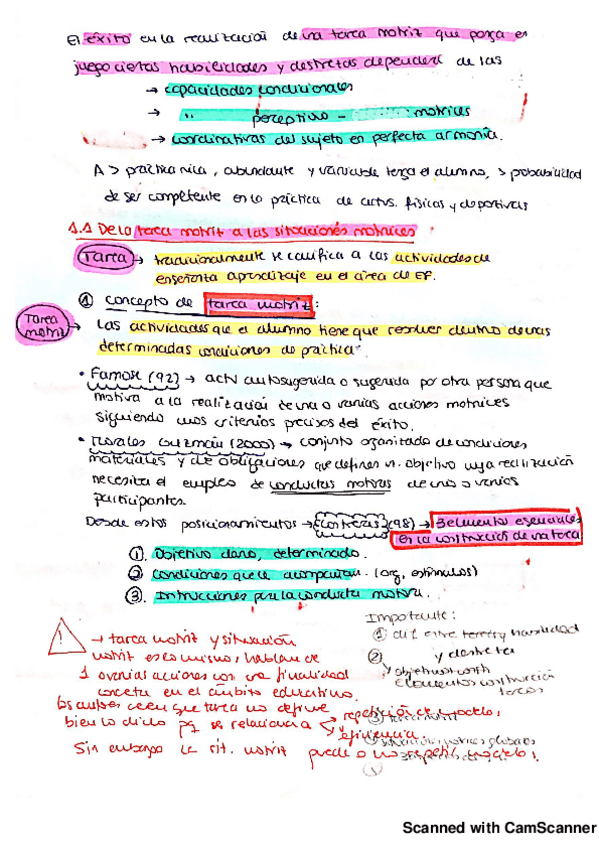 El éxito en la realización de una tarea motriz que ponga en
juego ciertas habilidades y destrezas dependerá de las
→ capacidades condicionales
→ " perceptivo - motrices
→ coordinativas del sujeto en perfecta armonía.
A > práctica rica, abundante y variable tenga el alumno, > probabilidad
de ser competente en la práctica de activs. físicas y deportivas
1.1 De la tarea motriz a las situaciones motrices
Tarea → tradicionalmente se califica a las actividades de
enseñanza aprendizaje en el área de EF.
① concepto de tarea motriz:
Tarea motriz → Las actividades que el alumno tiene que resolver dentro de unas
determinadas condiciones de práctica".
• Famose (92) → actv autosugerida o sugerida por otra persona que
motiva a la realización de una o varias acciones motrices
siguiendo unos criterios precisos del éxito.
• Morales Guzmán (2000) → conjunto organizado de condiciones
materiales y de obligaciones que definen un objetivo cuya realización
necesita el empleo de conductas motoras de uno o varios
participantes.
Desde estos posicionamientos → Contreras (98) → 3 elementos esenciales
en la construcción de una tarea
①. Objetivo claro, determinado.
②. Condiciones que le acompañan. (org, estímulos)
③. Instrucciones para la conducta motora.
! → tarea motriz y situación
motriz es lo mismo, hablan de
1 o varias acciones con una finalidad
concreta en el ámbito educativo.
Los autores creen que tarea no define
bien lo dicho pq se relaciona a repetición de modelos,
y eficiencia
Sin embargo la sit. motriz puede o no repetir modelos,
Importante:
① dif entre tarea, habilidad
y destreza
②
elementos construcción
tareas
Scanned with CamScanner